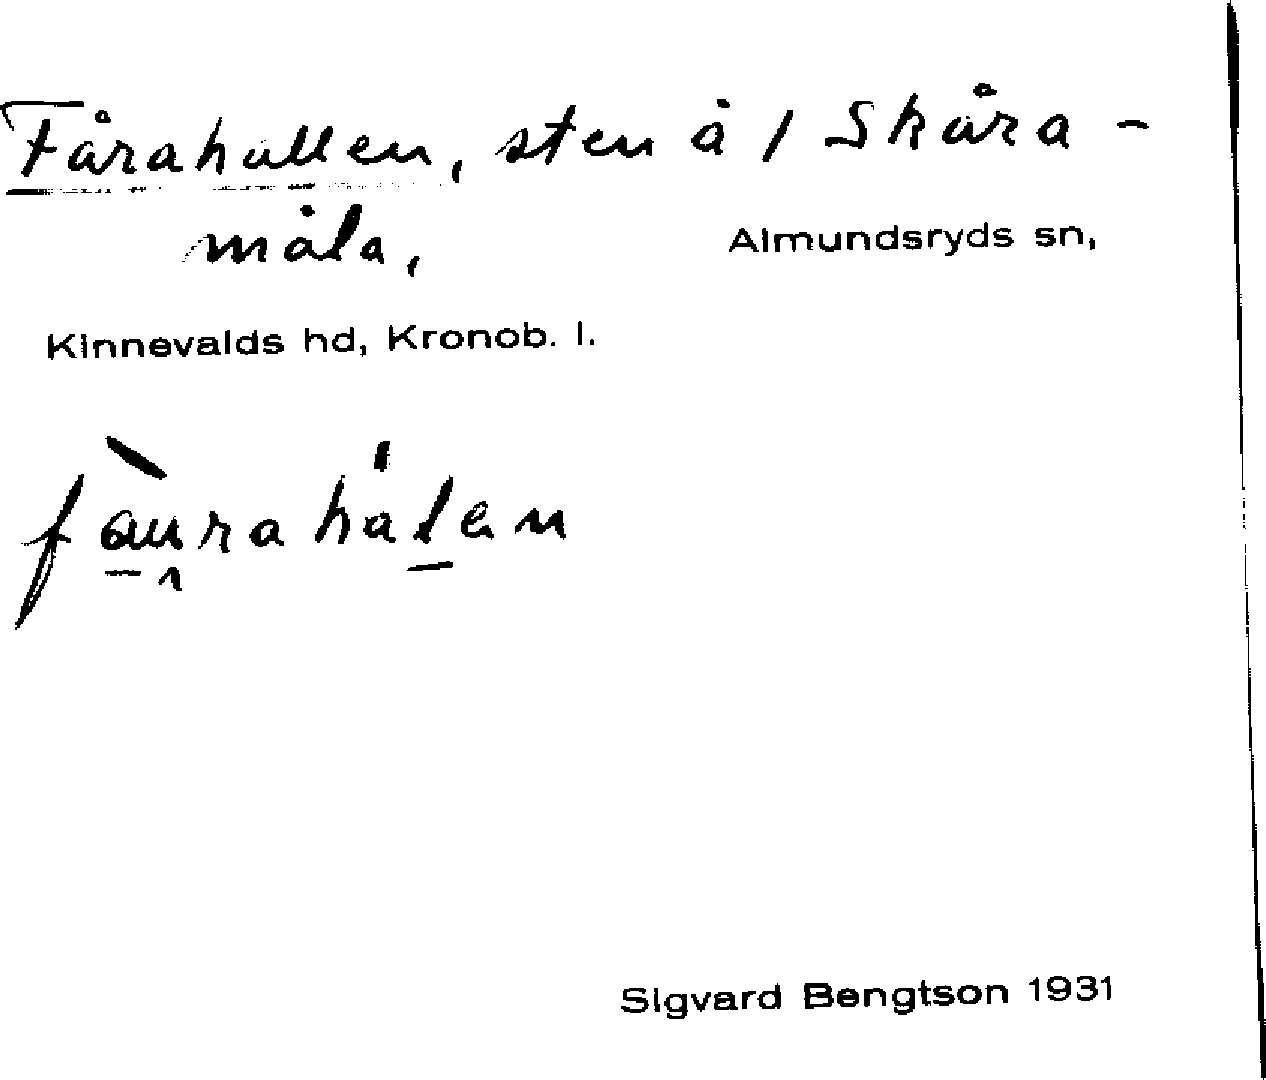 Fårahallen, sten å 1 Skåra-
måla,
Almundsryds sn,
Kinnevalds hd, Kronob. l.
fàurahálen
Sigvard Bengtson 1931